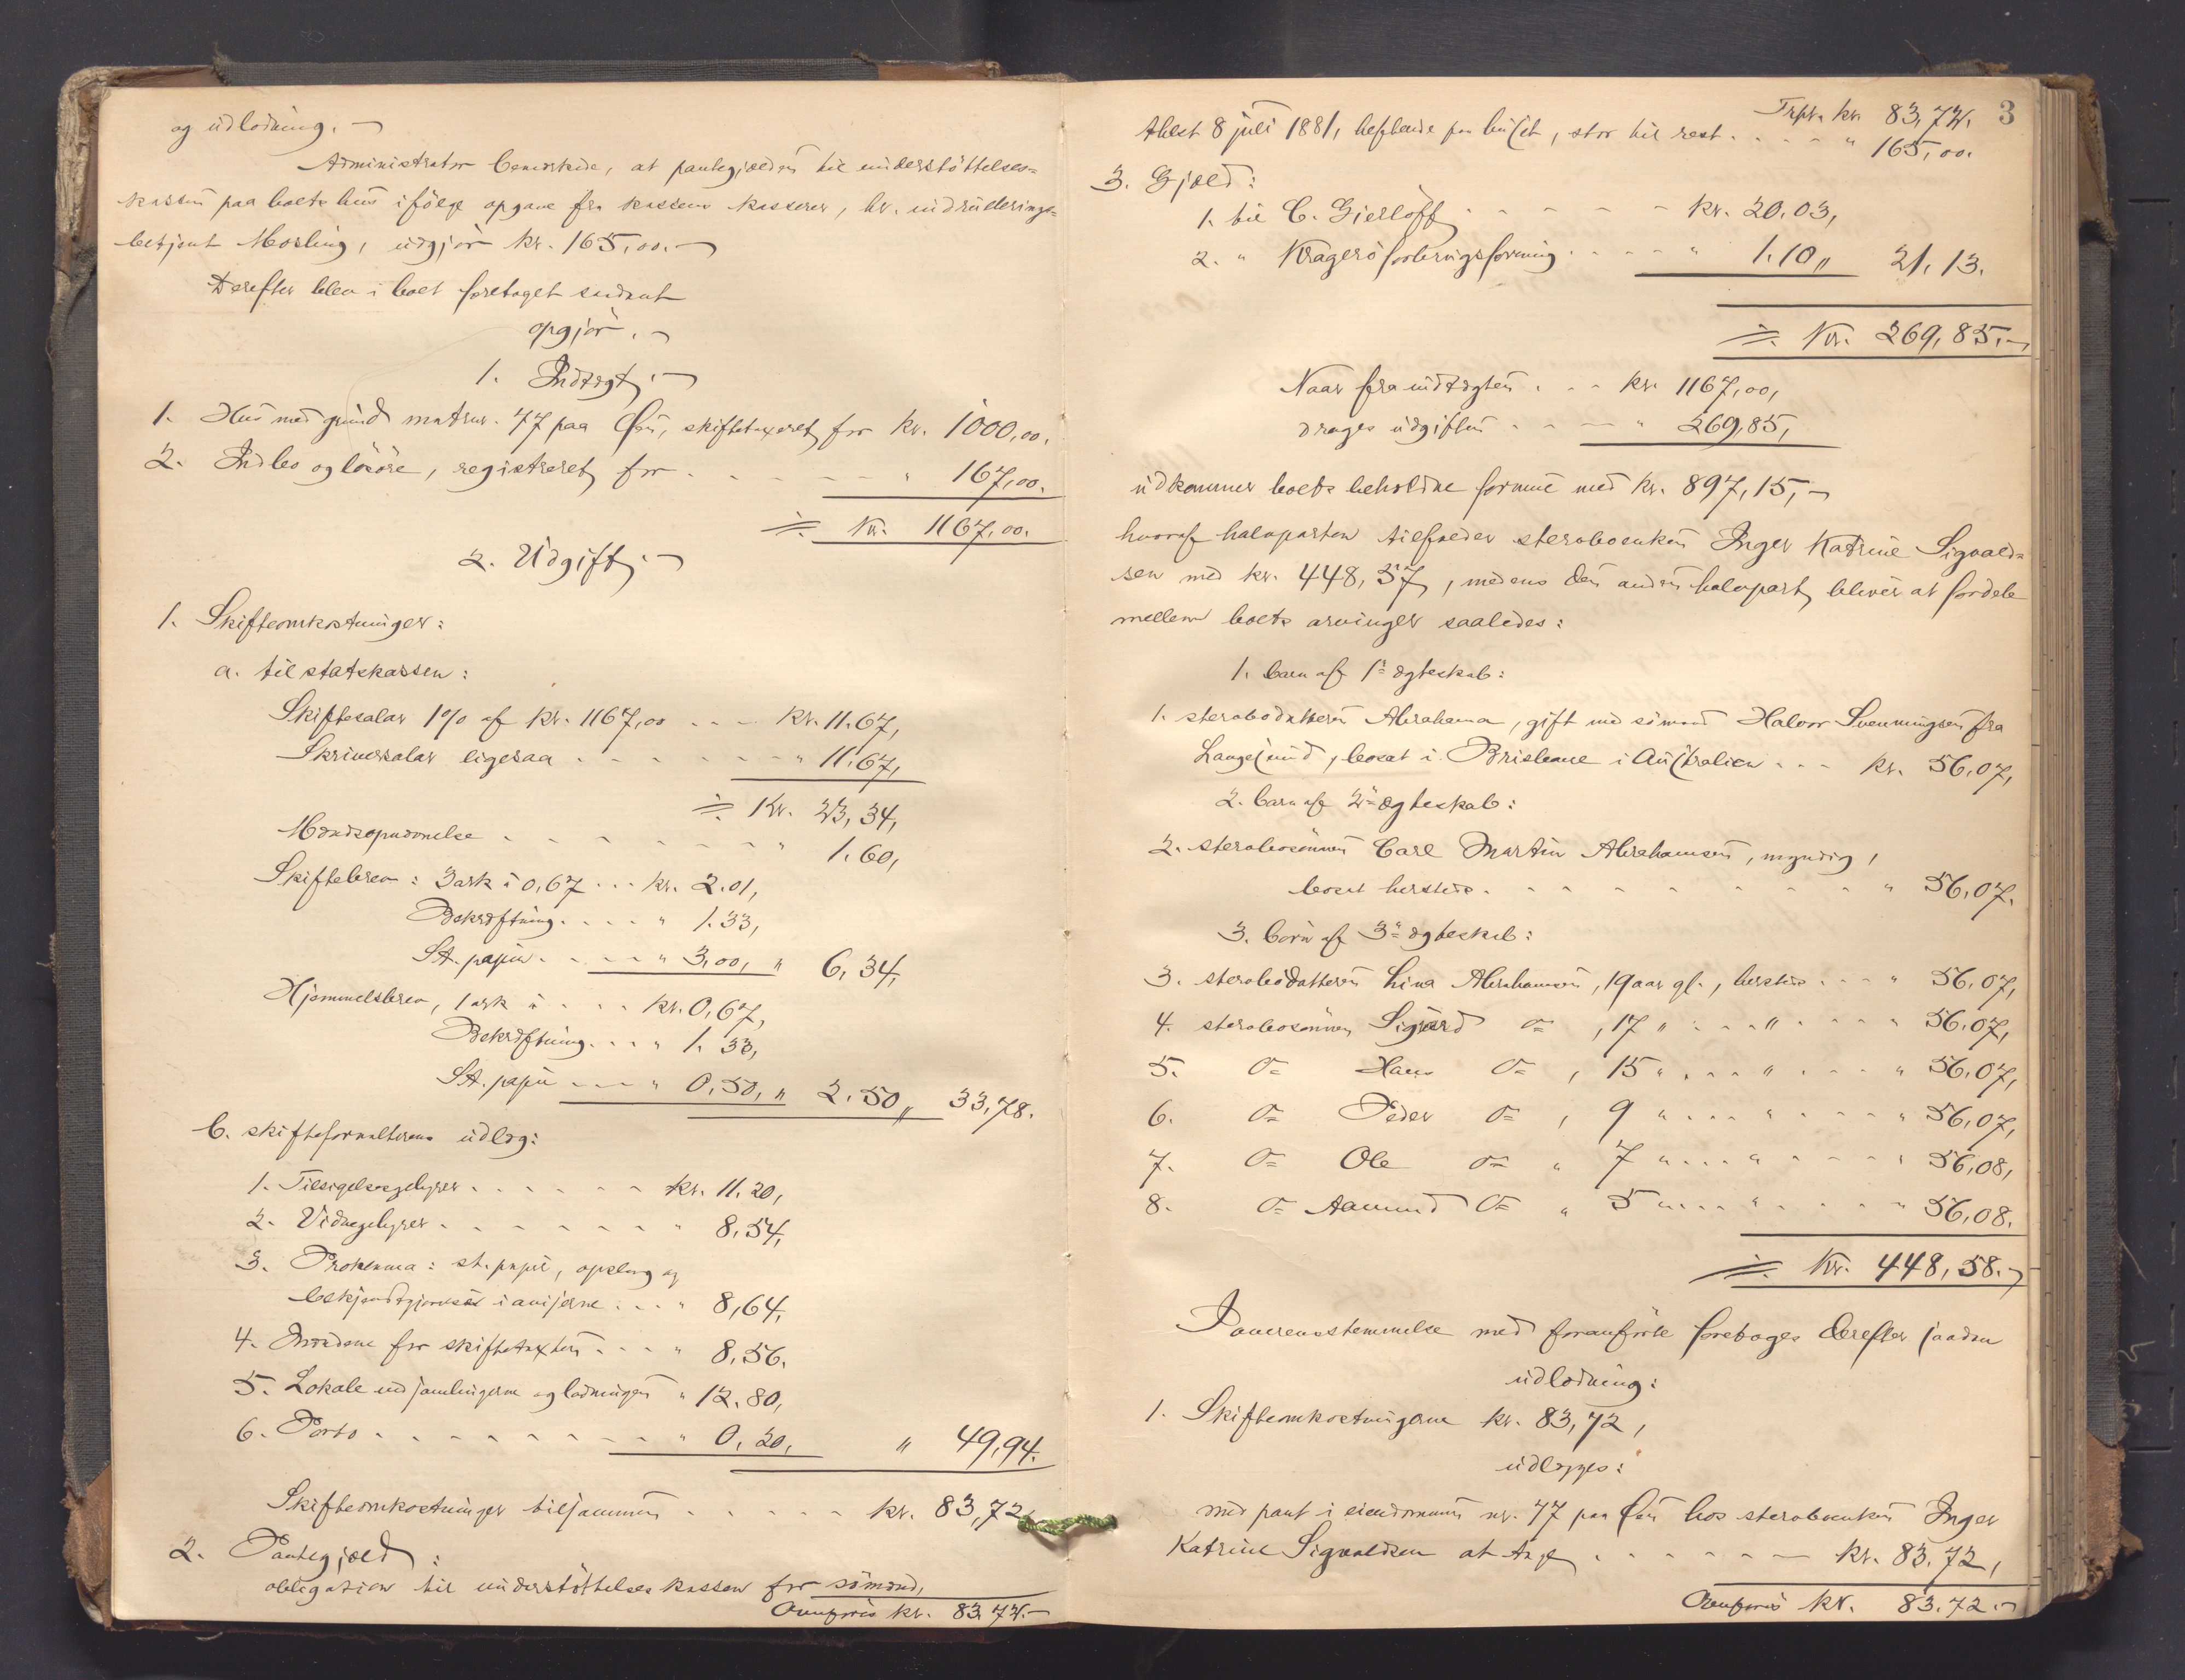 og udlodning. —
Administrator bemærkede, at pantegjælden til understöttelses-
kassen paa boets hus ifölge opgave fra kassens kasserer, hr. indrulerings-
betjent Morling, udgjör kr. 165,00. —
Derefter blev i boet foretaget saadant
opgjör. —
1. Indtægt. —
1. Hus med grund matrnr. 77 paa Öen, skiftetaxeret for kr. 1000,00.
2. Indbo og lösöre, registreret for . . . . " 167,00.
÷ Kr. 1167,00.
2. Udgift. —
1. Skifteomkostninger:
a. til statskassen:
Skiftesalar 1% af kr. 1167,00 . . . kr. 11.67,
Skriversalar ligesaa . . . . . . " 11.67,
÷ Kr. 23,34,
Mandsopnævnelse . . . . . . " 1.60,
Skiftebrev: 3 ark à 0,67 . . . kr. 2.01,
Bekræftning. . . . . " 1.33,
St. papir. . . . . " 3,00, " 6,34,
Hjemmelsbrev, 1 ark à . . . kr. 0,67,
Bekræftning. . . . " 1.33,
St. papir . . . . " 0,50, " 2.50 " 33,78.
b. skifteforvalterens udlæg:
1. Tilsigelsesgebyrer . . . . . . kr. 11.20,
2. Vidnegebyrer . . . . . . . " 8,54,
3. Proklama: st. papir, opslag og
bekjendtgjörelse i aviserne . . . " 8,64,
4. Mændene for skiftetaxten . . . " 8,56.
5. Lokale ved samlingerne og ladningen " 12.80,
6. Porto . . . . . . . . . " 0,20, " 49,94.
Skifteomkostninger tilsammen . . . . . kr. 83,72.
2. Pantegjæld:
obligation til understöttelseskassen for sömænd,
Overföres kr. 83.72. —
3
Trsp. kr. 83,72.
thlest 8 juli 1881, heftende paa huset, stor til rest . . . . " 165,00.
3. Gjæld:
1. til C. Gierlöff . . . . . . kr. 20.03,
2. " Kragerö forbrugsforening . . . . " 1.10 " 21.13.
÷ Kr. 269,85. —
Naar fra indtægten . . . kr. 1167,00,
drages udgiften . . . . " 269,85,
udkommer boets beholdne formue med kr. 897,15, —
hvoraf halvparten tilfalder stervboenken Inger Katrine Sigvald-
sen med kr. 448,57, medens den anden halvpart bliver at fordele
mellem boets arvinger saaledes:
1. barn af 1ste ægteskab:
1. stervbodatteren Abrahama, gift med sömand Halvor Svenningsen fra
Langesund, bosat i Brisbane i Australien . . . kr. 56,07,
2. barn af 2det ægteskab:
2. stervbosönnen Carl Martin Abrahamsen, myndig,
bosat hersteds . . . . . . . . . " 56,07.
3. börn af 3die ægteskab:
3. stervbodatteren Lina Abrahamsen, 19 aar gl., hersteds . . . " 56,07,
4. stervbosönnen Sigurd do , 17 " . . . " . . . . " 56,07,
5. do Hans do , 15 " . . . " . . . . " 56,07,
6. do Peder do , 9 " . . . " . . . . " 56,07,
7. do Ole do " 7 " . . . " . . . . " 56,08,
8. do Aamund do " 5 " . . . " . . . . " 56,08.
÷ Kr. 448,58. —
I overensstemmelse med foranförte foretoges derefter saadan
udlodning:
1. Skifteomkostningerne kr. 83,72,
udlægges:
med pant i eiendommen nr. 77 paa Öen hos stervboenken Inger
Katrine Sigvaldsen at tage . . . . . . . kr. 83.72,
Overföres kr. 83.72. —